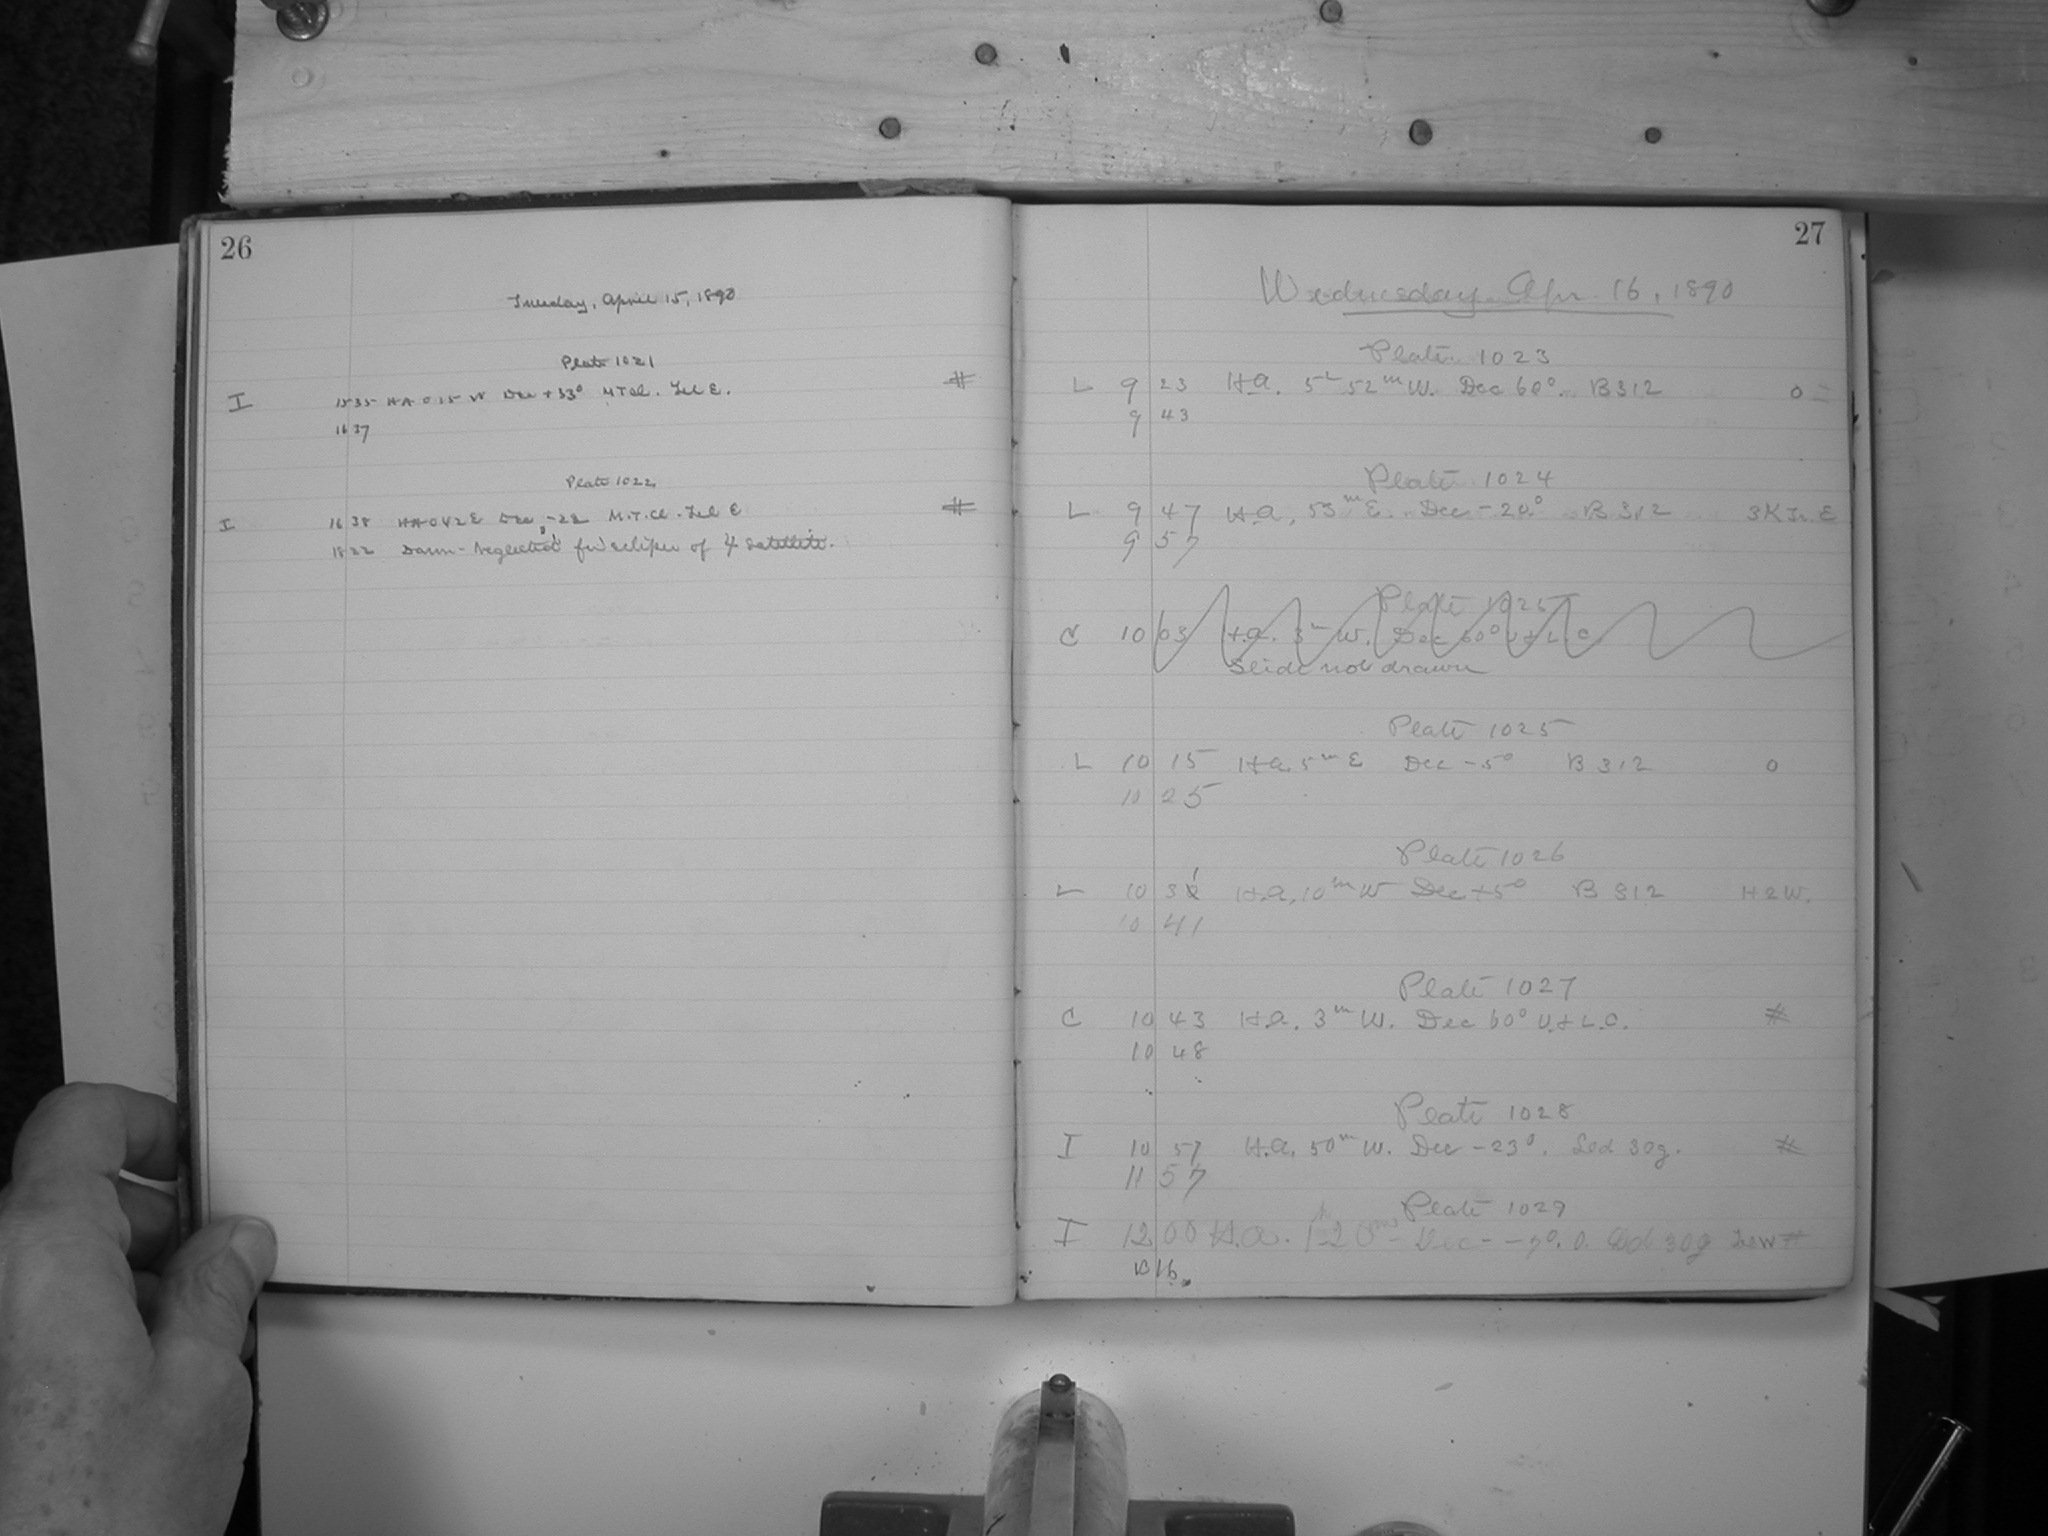 26
Tuesday, April 15, 1890
Plate 1021
I 15 35 HA 0 15 W Dec +33° M.T.Cl. Tel E. #
16 37
Plate 1022
I 16 38 HA 0 42 E Dec -22 M.T.Cl. Tel E #
18 22 Dawn - neglected for eclipse of ♃ satellite.
27
Wednesday Apr. 16, 1890
Plate 1023
L 9 23 H.A. 5h 52m W. Dec 60°. B312 0
9 43
Plate 1024
L 9 47 H.A. 53m E. Dec -20° B 312 3K Tr. E
9 57
Plate 1025
C 10 03 H.A. 3m W. Dec 60° U. & L.C.
Slide not drawn
Plate 1025
L 10 15 H.A. 5m E Dec -5° B 312 0
10 25
Plate 1026
L 10 31 H.A. 10m W Dec +5° B 312 H2W.
10 41
Plate 1027
C 10 43 H.A. 3m W. Dec 60° U. & L.C. #
10 48
Plate 1028
I 10 57 H.A. 50m W. Dec -23°. Sed 30g. #
11 57
Plate 1029
I 12 00 H.A. 1h 20m - Dec - -7°. 0. 30g #
13 16